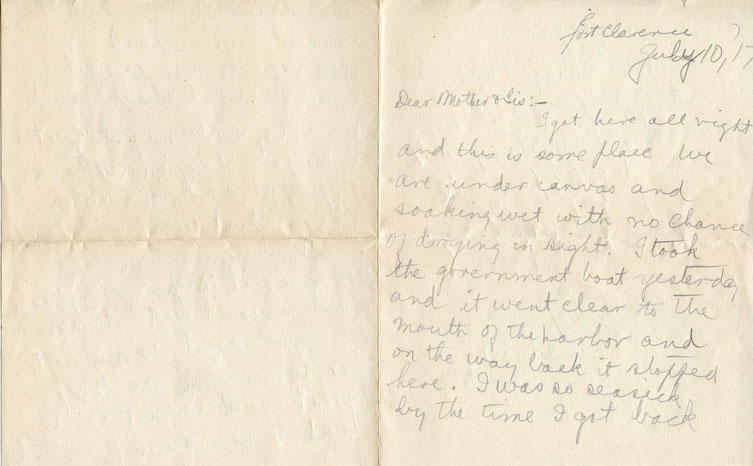 Fort Clarence
July 10, 17
Dear Mother & Sis:-
I got here all right
and this is some place We
are under canvas and
soaking wet with no chance
of droying in sight. I took
the government boat yesterday
and it went clear to the
mouth of the harbor and
on the way back it stopped
here. I was so seasick
by the time I got back